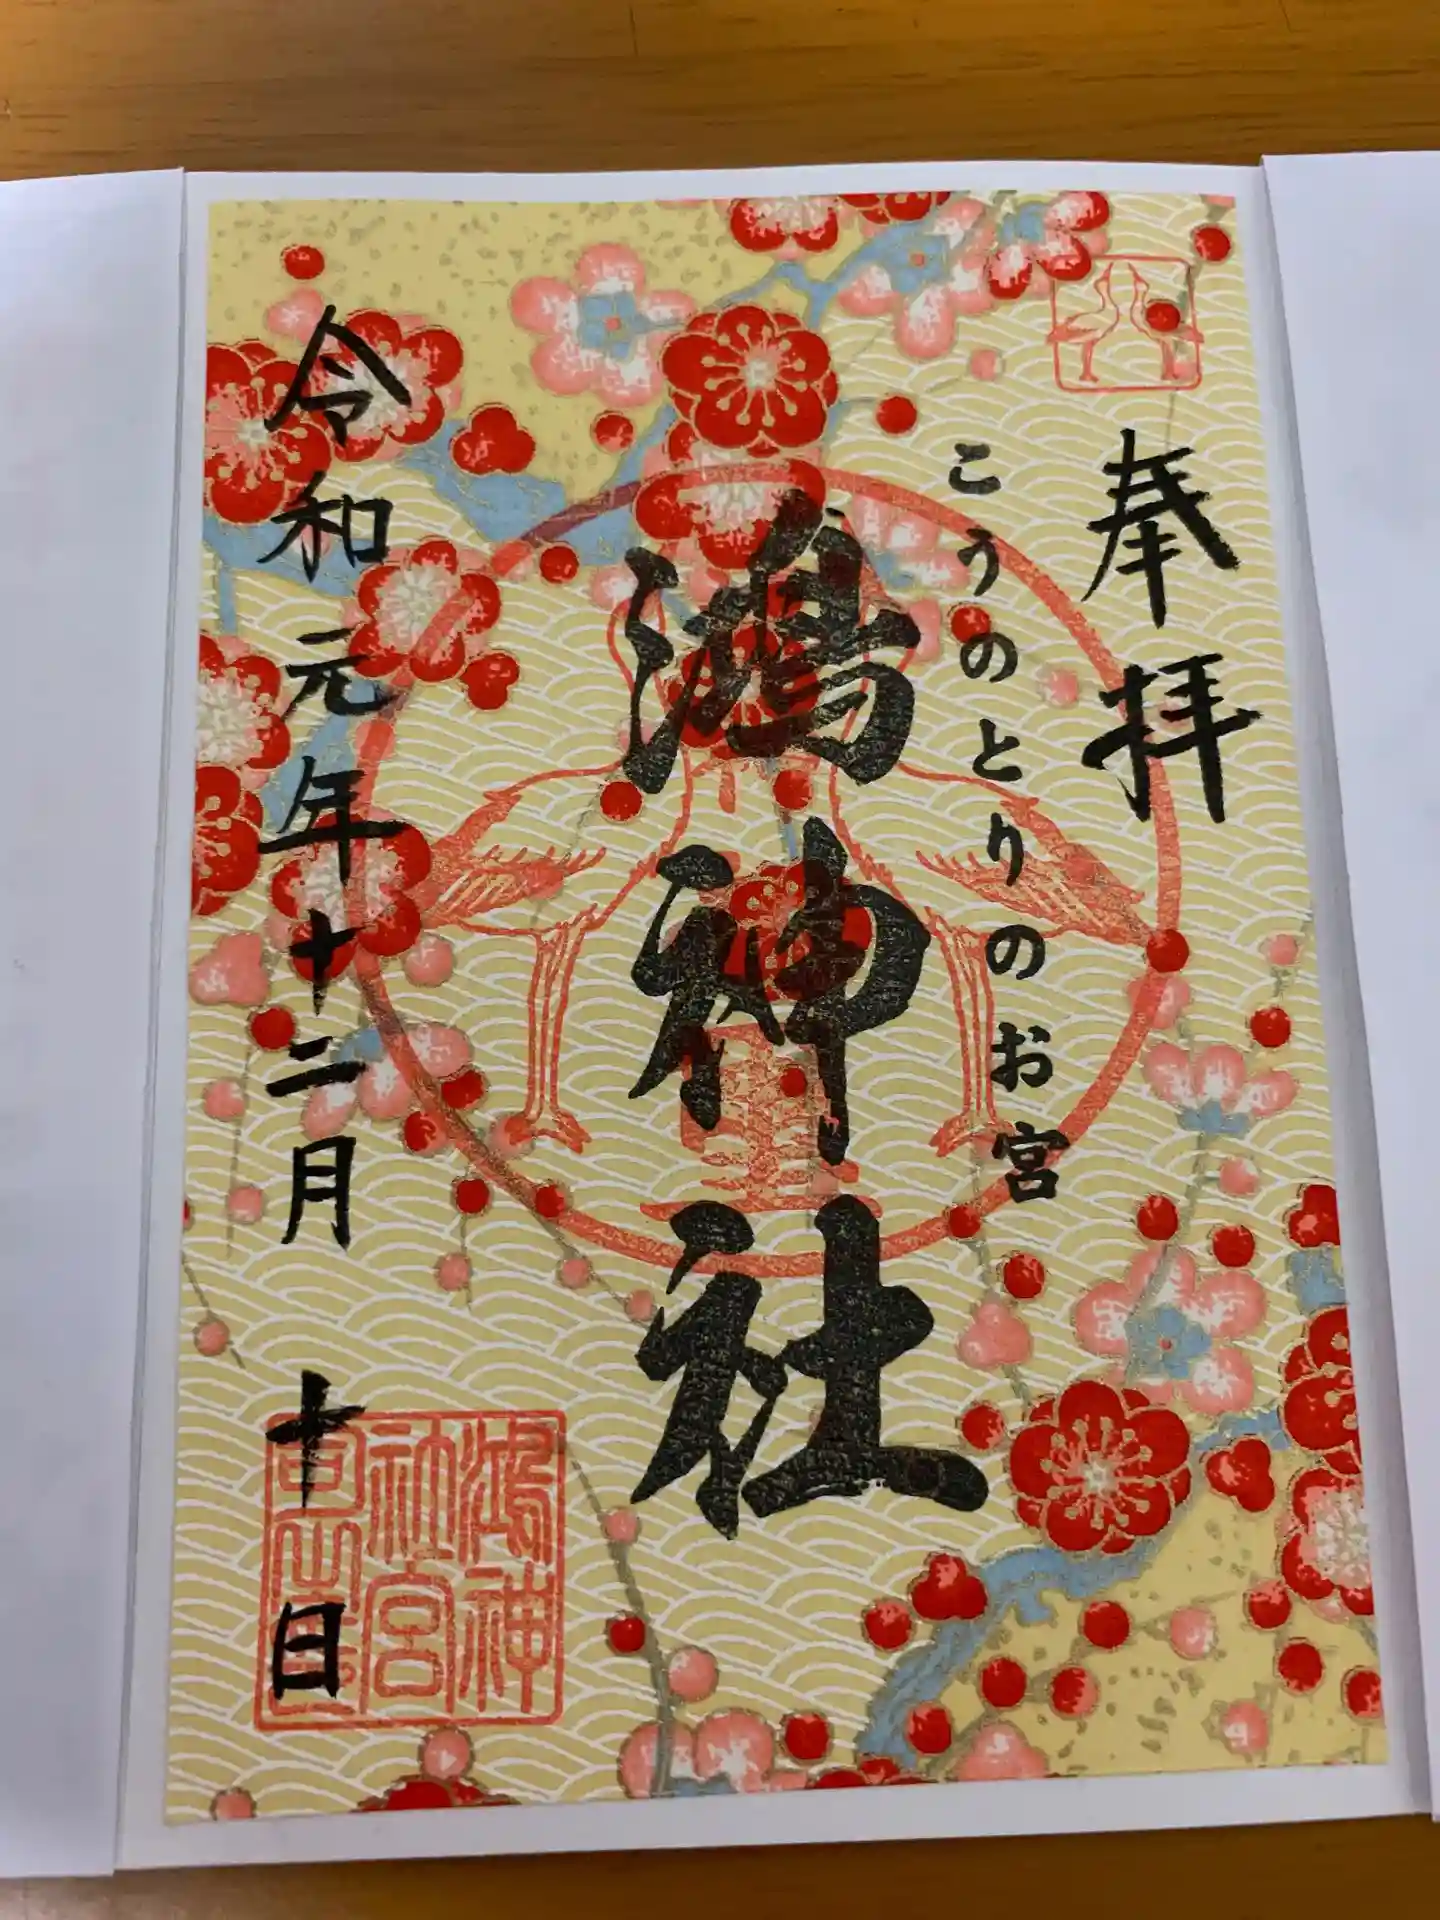 奉拝
こうのとりのお宮
鴻神社
令和元年十二月十日
鴻神
社宮